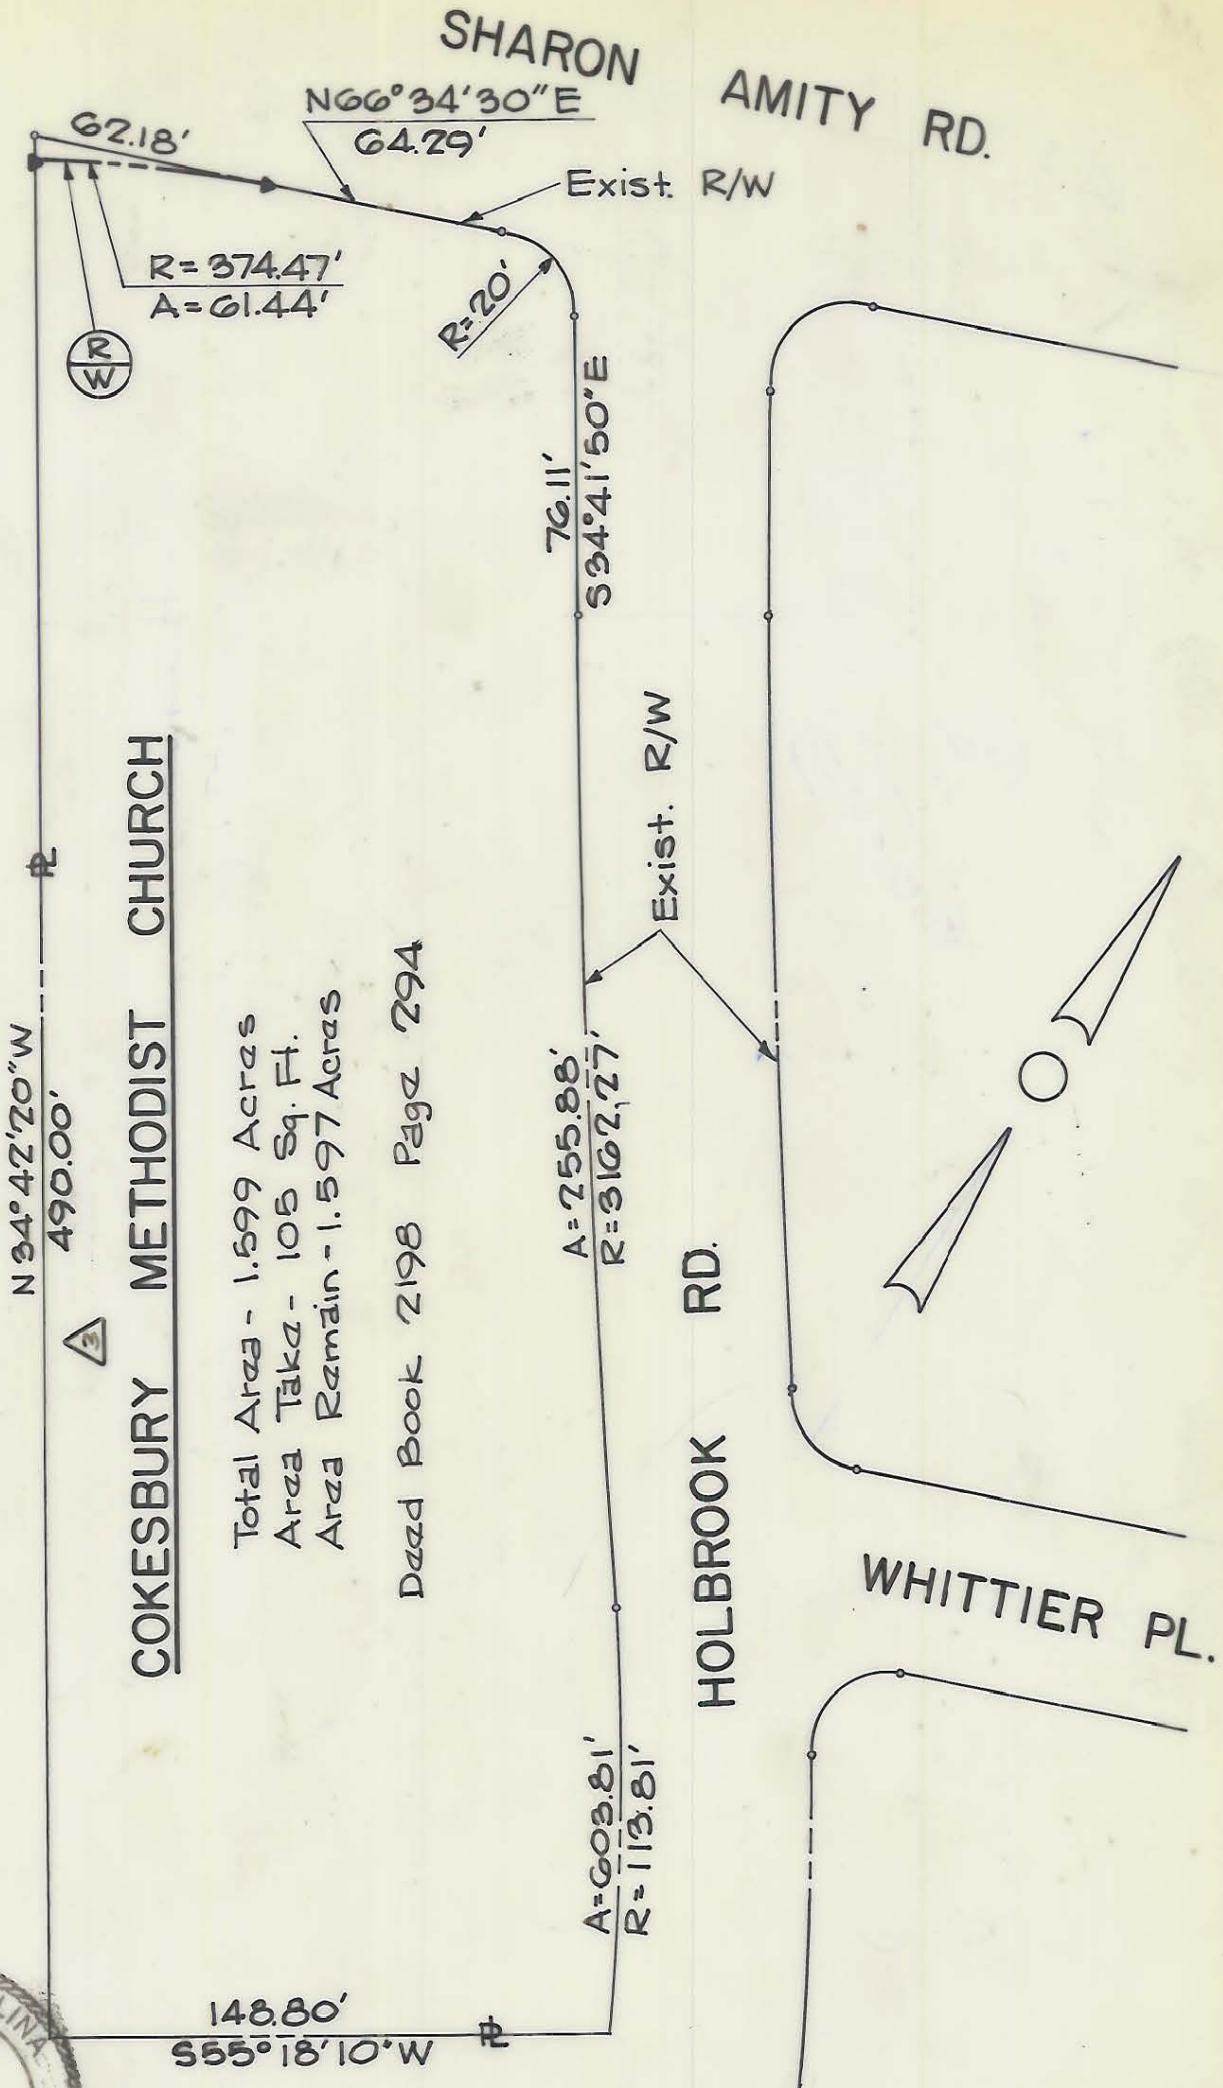 SHARON AMITY RD.
N66°34'30"E
64.29'
62.18'
Exist. R/W
R=374.47'
A=61.44'
R=20'
R
W
76.11'
S34°41'50"E
N34°42'20"W
490.00'
PL
3
COKESBURY METHODIST CHURCH
Total Area - 1.599 Acres
Area Take - 105 Sq. Ft.
Area Remain - 1.597 Acres
Deed Book 2198 Page 294
Exist. R/W
A=255.88'
R=3162.27'
HOLBROOK RD.
WHITTIER PL.
A=603.81'
R=113.81'
148.80'
S55°18'10"W
PL
LINA